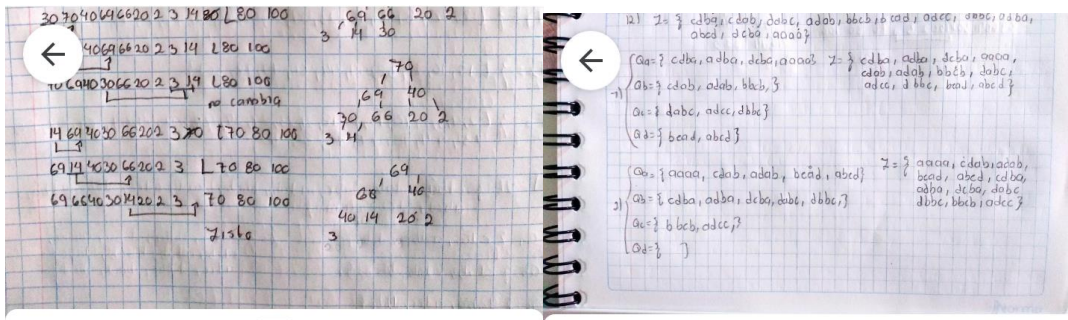 30 70 40 69 66 20 2 3 14 80 L80 100
40 69 66 20 2 3 14 L80 100
70 69 40 30 66 20 2 3 14 L80 100
no cambia
14 69 40 30 66 20 2 3 70 L70 80 100
69 14 40 30 66 20 2 3 L70 80 100
69 66 40 30 14 20 2 3 70 80 100
Listo
69 66 20 2
3 14 30
70
69 40
30 66 20 2
3 14
69
66 40
40 14 20 2
3
12) Z = { cdba, cdab, dabc, adab, bbcb, bcad, adcc, dbbc, adba,
abcd, dcba, aaaa }
1) Qa = { cdba, adba, dcba, aaaa }
Qb = { cdab, adab, bbcb, }
Qc = { dabc, adcc, dbbc }
Qd = { bcad, abcd }
Z = { cdba, adba, dcba, aaaa,
cdab, adab, bbcb, dabc,
adcc, dbbc, bcad, abcd }
2) Qa = { aaaa, cdab, adab, bcad, abcd }
Qb = { cdba, adba, dcba, dabc, dbbc, }
Qc = { bbcb, adcc, }
Qd = { }
Z = { aaaa, cdab, adab,
bcad, abcd, cdba,
adba, dcba, dabc
dbbc, bbcb, adcc }